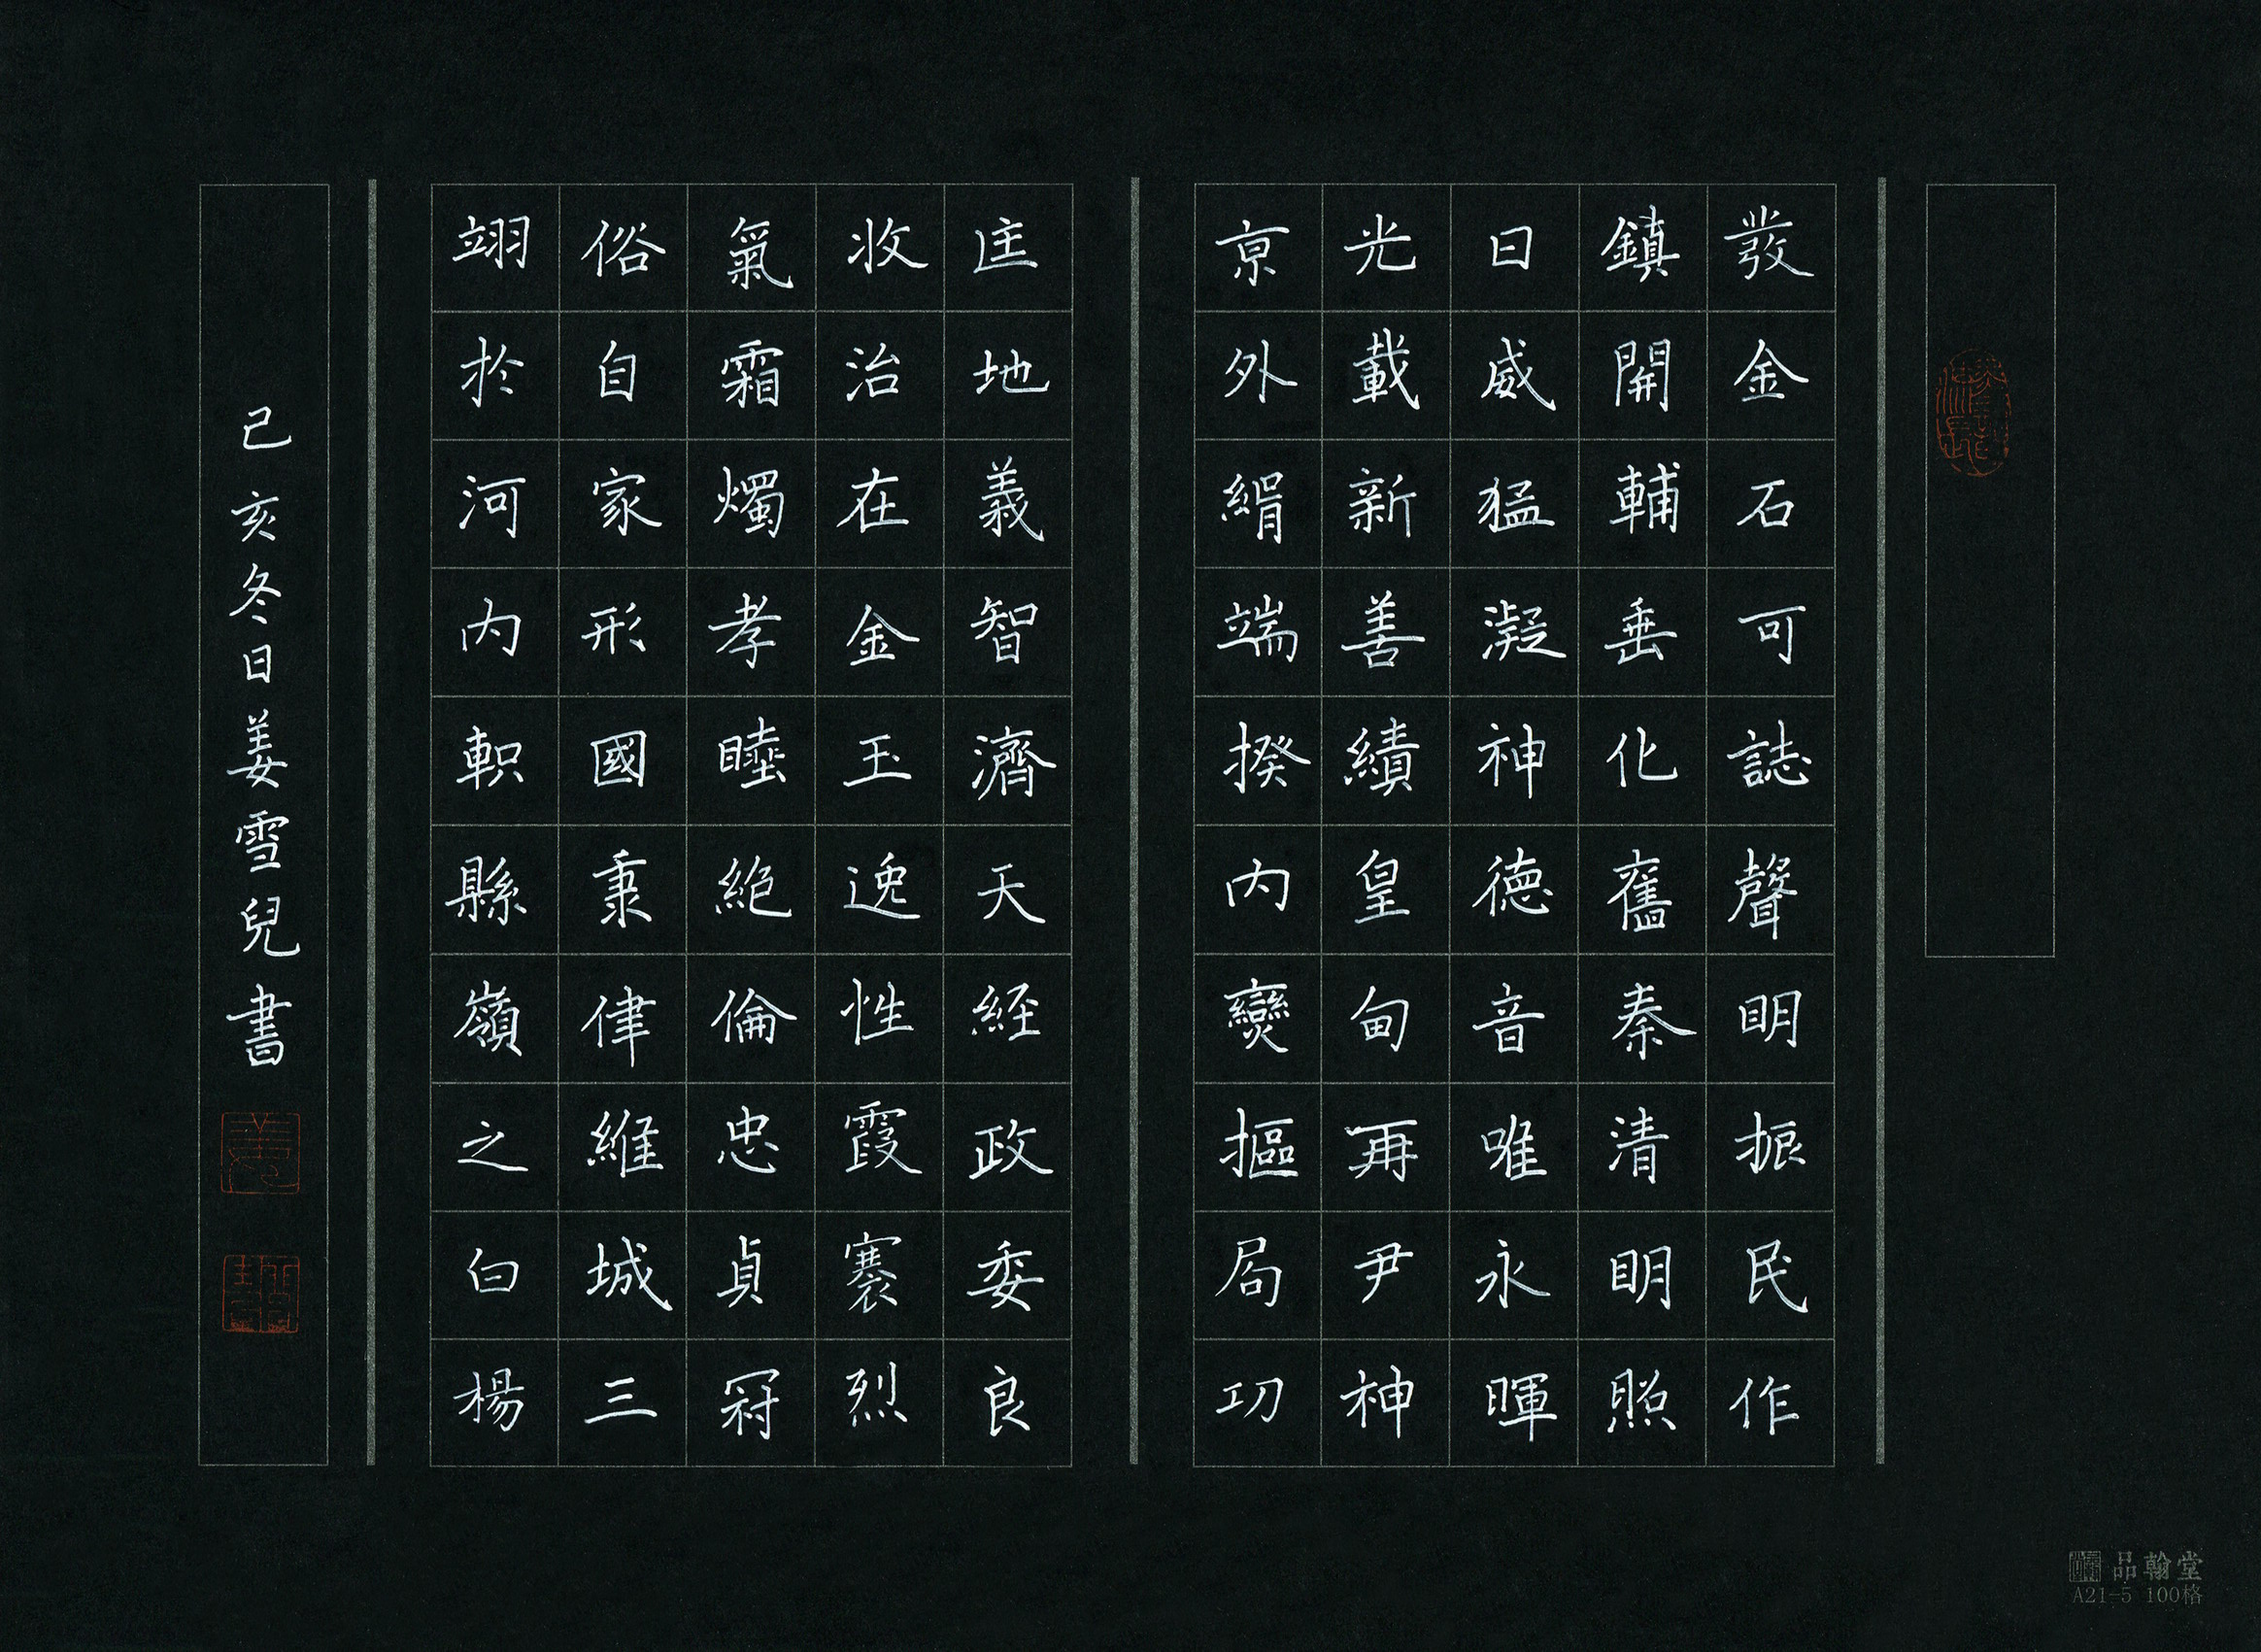 發金石可誌聲明振民作
鎮開輔垂化舊秦清明照
日威猛凝神德音唯永暉
光載新善績皇甸再尹神
京外緝端揆內變摳局功
匡地義智濟天經政委良
收治在金玉逸性霞褰烈
氣霜燭孝睦絕倫忠貞冠
俗自家形國秉律維城三
翊於河內軹縣嶺之白楊
己亥冬日姜雪兒書
品翰堂
A21-5 100格